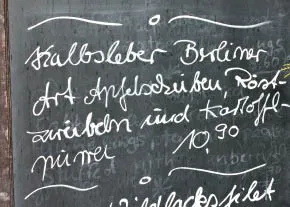 Kalbsleber Berliner
Art Apfelscheiben, Röst-
zwiebeln und Kartoffel-
püree 10,90
Wildlachsfilet